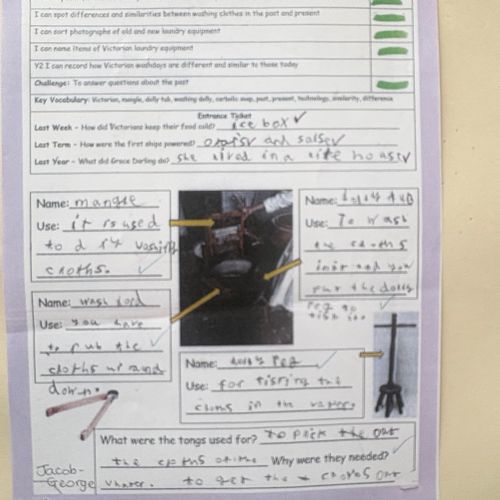 I can spot differences and similarities between washing clothes in the past and present
I can sort photographs of old and new laundry equipment
I can name items of Victorian laundry equipment
Y2 I can record how Victorian washdays are different and similar to those today
Challenge: To answer questions about the past
Key Vocabulary: Victorian, mangle, dolly tub, washing dolly, carbolic soap, past, present, technology, similarity, difference
Entrance Ticket
Last Week - How did Victorians keep their food cold? ice box
Last Term - How were the first ships powered? and
Last Year - What did Grace Darling do? she lived in a
Name: mangle
Use: it is used
to
cloths.
Name: wash
Use: you have
to rub the
cloths up and
down.
Name: tub
Use: To wash
the cloths
you
put the dolly
peg to
Name: dolly peg
Use: for the
in the
What were the tongs used for? to pick the out
the Why were they needed?
to get the out
Jacob-
George